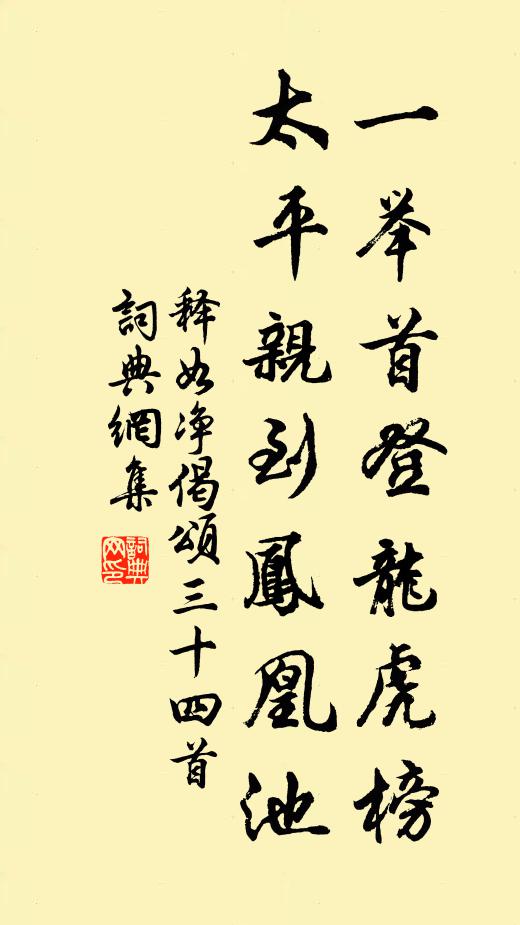 一举首登龍虎榜
太平親到鳳凰池
释如净偈頌三十四首
詞典網集
詞典网印